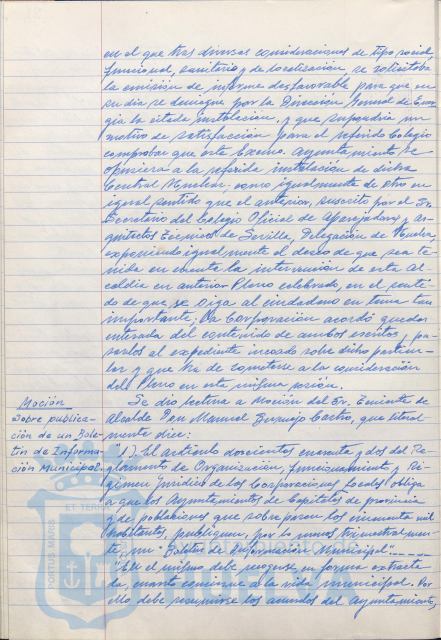 en el que tras diversas consideraciones de tipo social,
funcional, sanitario y de localización se solicitaba
la emisión de informe desfavorable para que en
su día se deniegue por la Dirección General de Ener-
gía la citada instalación, y que supondría un
motivo de satisfacción para el referido Colegio
comprobar que este Excmo. Ayuntamiento se
opusiera a la referida instalación de dicha
Central Nuclear; como igualmente de otro en
igual sentido que el anterior, suscrito por el Sr.
Secretario del Colegio Oficial de Aparejadores y Ar-
quitectos Técnicos de Sevilla, Delegación de Huelva
exponiendo igualmente el deseo de que sea te-
nida en cuenta la intervención de esta Al-
caldía en anterior Pleno celebrado, en el senti-
do de que se oiga al ciudadano en tema tan
importante; la Corporación acordó quedar
enterada del contenido de ambos escritos, pa-
sarlos al expediente incoado sobre dicho particu-
lar y que ha de someterse a la consideración
del Pleno en esta misma sesión.
Moción
sobre publica-
ción de un Bole-
tín de Informa-
ción Municipal.
Se dio lectura a Moción del Sr. Teniente de
Alcalde Don Manuel Castro, que literal-
mente dice:
"1). El artículo doscientos cuarenta y dos del Re-
glamento de Organización, funcionamiento y Ré-
gimen Jurídico de las Corporaciones Locales obliga
a que los Ayuntamientos de Capitales de provincia
y de poblaciones que sobrepasen los cincuenta mil
habitantes, publiquen, por lo menos trimestralmen-
te, un "Boletín de Información Municipal".
"En el mismo debe recogerse, en forma extracta-
da, cuanto concierne a la vida municipal. Por
ello debe resumirse los acuerdos del Ayuntamiento,
PORTUS MARIS ET TERRAE